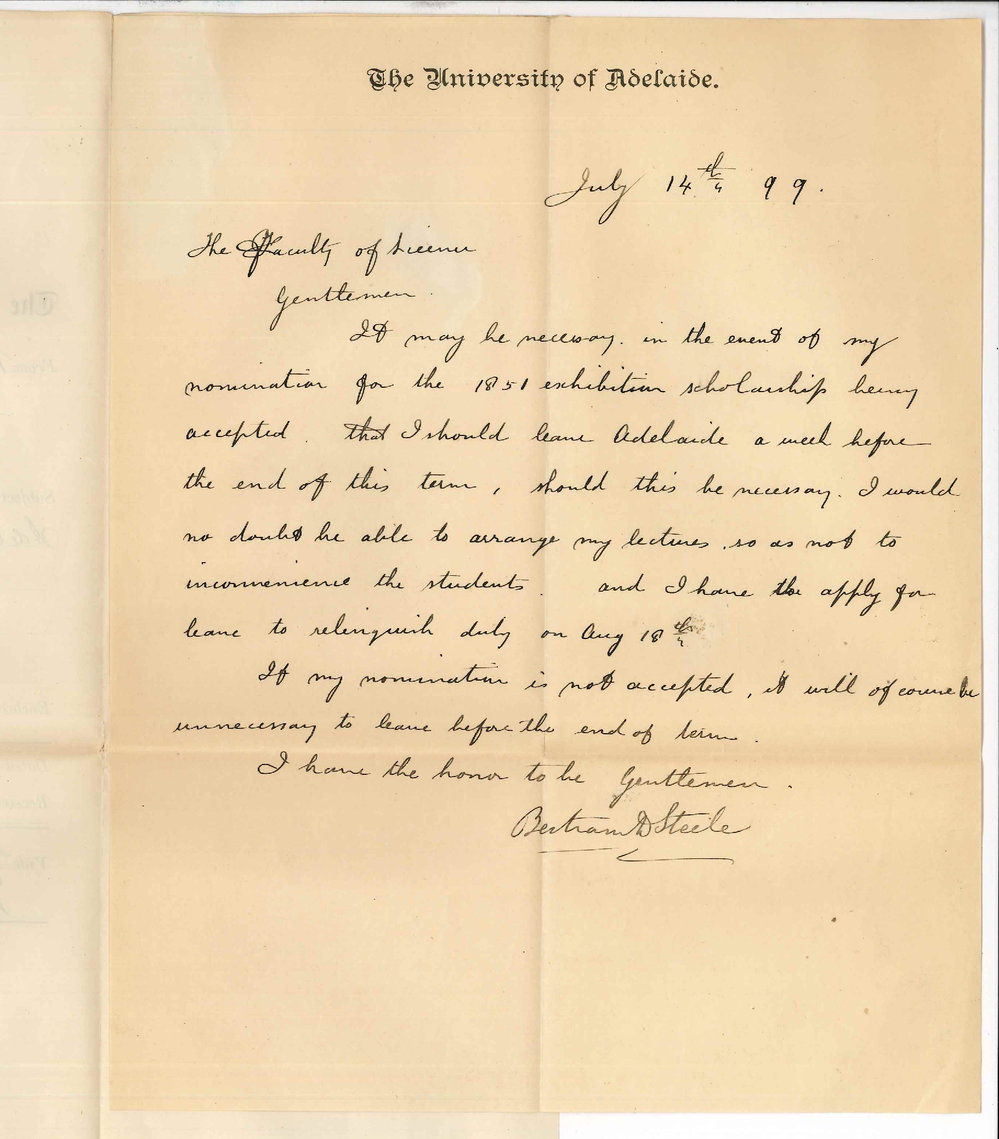 The University of Adelaide.
July 14th 99.
The Faculty of Science
Gentlemen.
It may be necessay. in the event of my
nomination for the 1851 exhibition scholarship being
accepted. that I should leave Adelaide a week before
the end of this term, should this be necessay. I would
no doubt be able to arrange my lectures, so as not to
inconvenience the students. and I have to apply for
leave to relinquish duty on Aug 18th
If my nomination is not accepted, it will of course be
unnecessay to leave before the end of term.
I have the honor to be Gentlemen.
Bertram D Steele
The